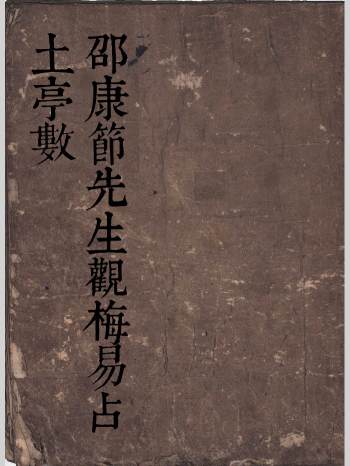 邵康節先生觀梅易占
土亭數